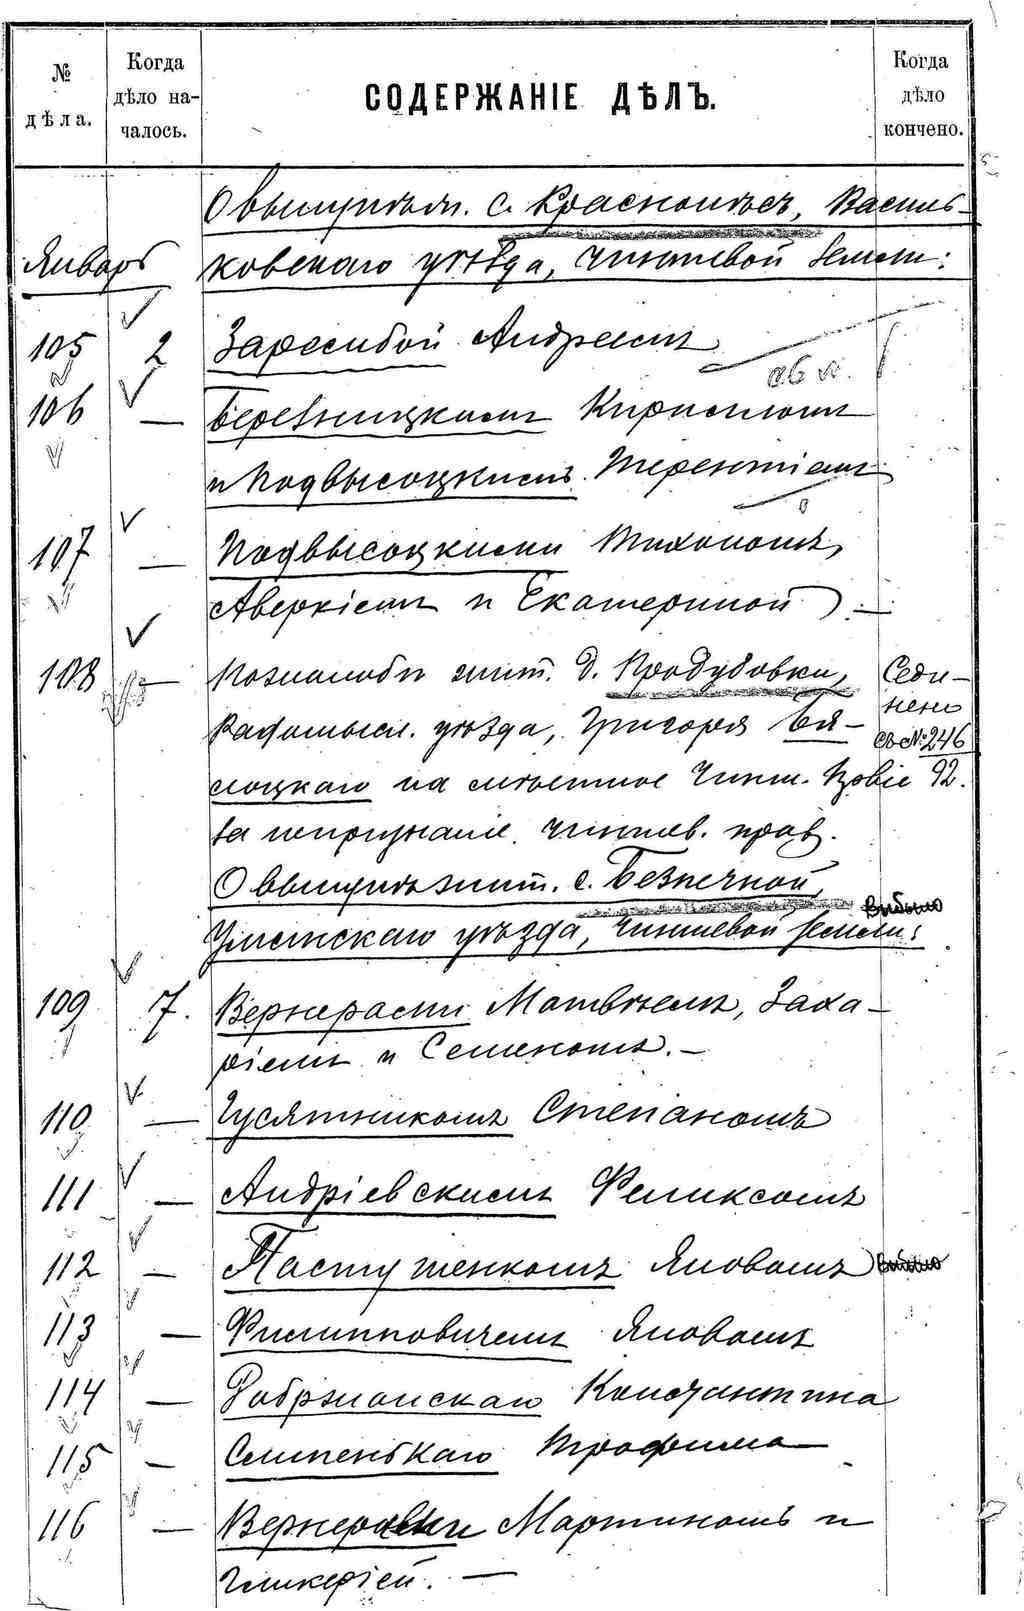 № дѣла.
Когда дѣло началось.
СОДЕРЖАНІЕ ДѢЛЪ.
Когда дѣло кончено.
О выкупѣ жит. с. Краснолѣсъ, Василь-
Январь
ковскаго уѣзда, чиншевой земли:
105 2 Зарембой Андреемъ
106 — Березницкимъ Кириломъ
и Подвысоцкимъ Терентіемъ
107 — Подвысоцкими Тихономъ,
Аверкіемъ и Екатериной ) —
108 — По жалобѣ жит. д. Продубовки,
Соеди-
нено
Радомысл. уѣзда, Григорія Бя-
съ № 246
92.
лоцкаго на мѣстное Чинш. Прис
за непризнаніе чиншев. прав.
О выкупѣ жит. с. Безпечной,
Уманскаго уѣзда, чиншевой земли:
109 7. Вернерами Матвѣемъ, Заха-
ріемъ и Семеномъ. —
110 — Гусятникомъ Степаномъ
111 — Андріевскимъ Феликсомъ
112 — Пастушенкомъ Яковомъ
113 — Филипповичемъ Яковомъ
114 — Добржанскаго Константина
115 — Слипенькаго Трофима
116 — Мартиномъ и
Гликеріей. —